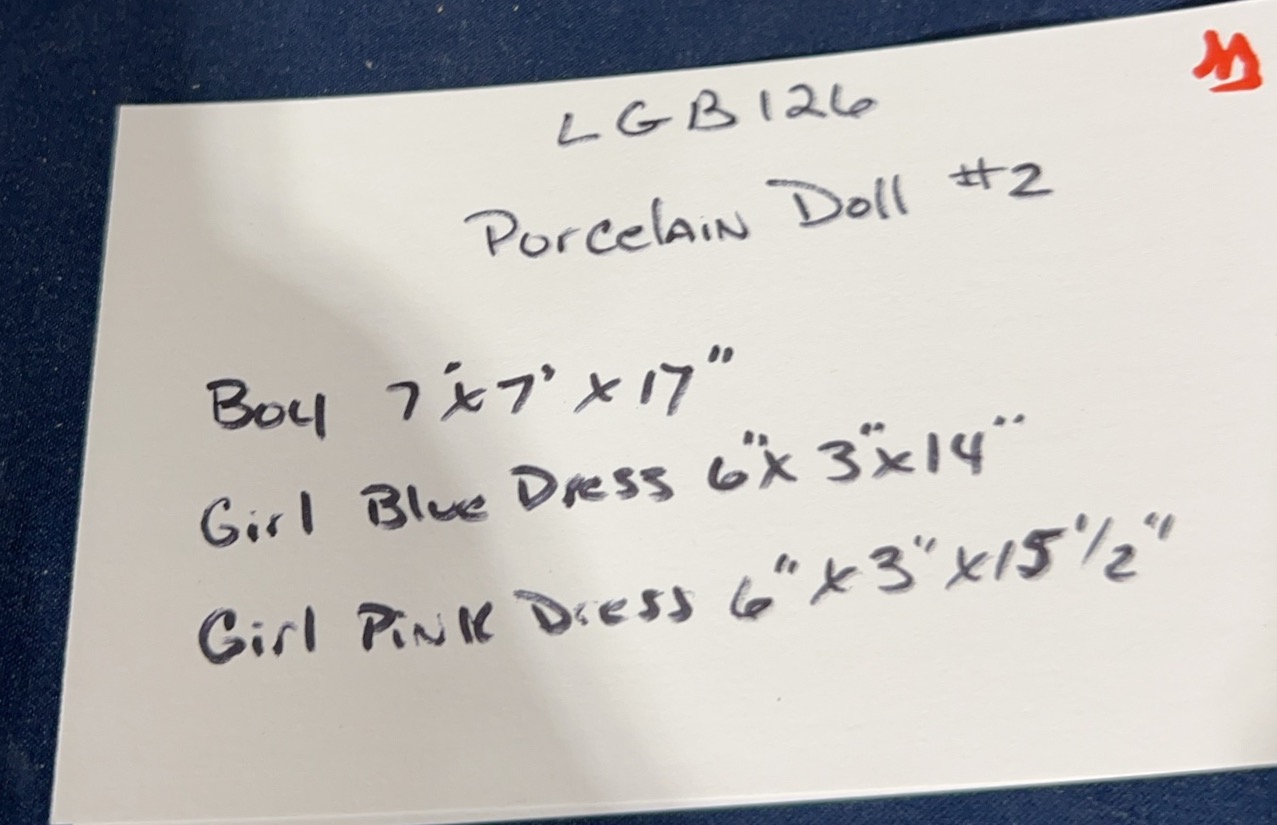 LGB126
Porcelain Doll #2
Boy 7"x7' x17"
Girl Blue Dress 6"x 3"x14"
Girl Pink Dress 6" x3" x15 1/2"